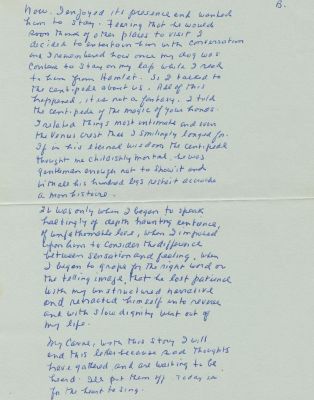 B.
Now. I enjoyed its presence and wanted
him to stay. Fearing that he would
soon think of other places to visit I
decided to entertain him with conversation
and I remembered how once my dog was
content to stay on my lap while I read
to him from Hamlet. So I talked to
the centipede about us. All of this
happened, it is not a fantasy. I told
the centipede of the magic of your hands.
I related things most intimate and even
the Venus crest that I smilingly longed for.
If in his eternal wisdom the centipede
thought me childishly mortal, he was
gentleman enough not to show it and
with all his hundred legs
a mon histoire.
It was only when I began to speak
haltingly of depth haunting sentence,
of unfathomable love, when I imposed
upon him to consider the difference
between sensation and feeling, when
I began to grope for the right word or
the telling image, that he lost patience
with my unstructured narrative
and retracted himself into reverie
and with slow dignity went out of
my life.
My Carne, with this story I will
end this letter because sad thoughts
have gathered and are waiting to be
heard. I'll put them off. Today is
for the heart to sing.